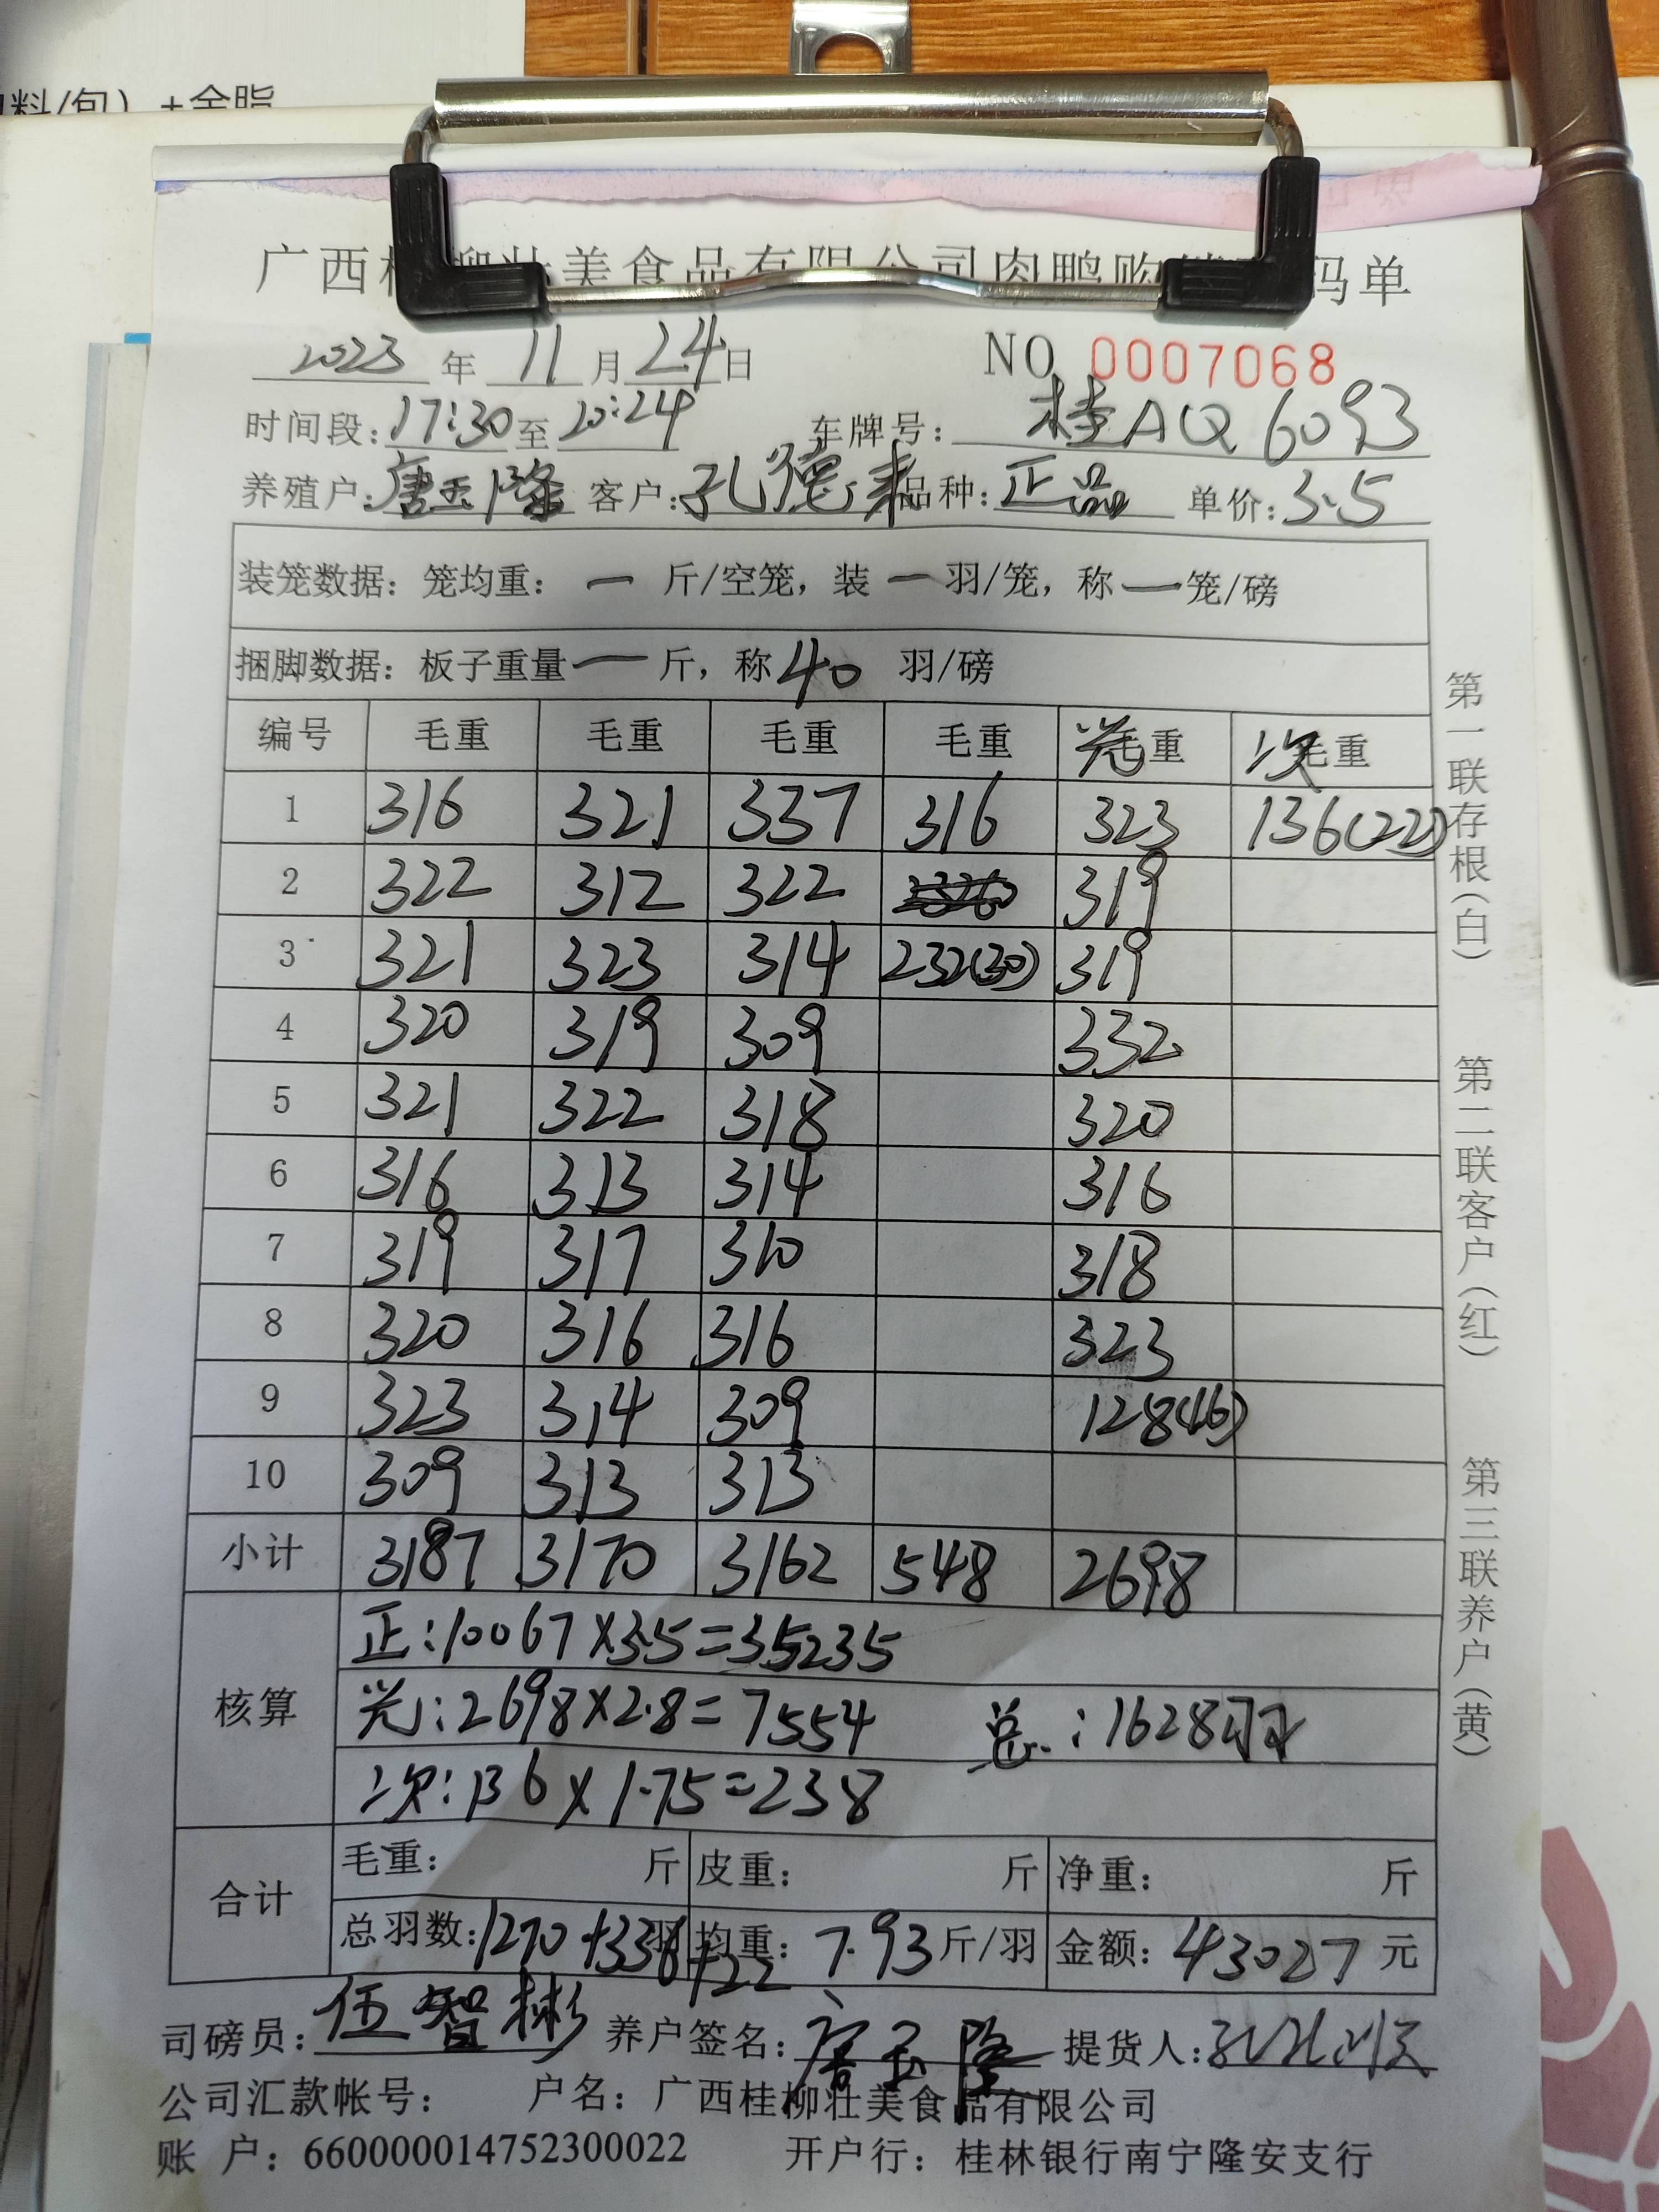 料/包）+金脂
广西桂柳壮美食品有限公司肉鸭购销 码单
2023 年 11 月 24 日 NO 0007068
时间段: 17:30 至 20:24 车牌号: 桂AQ6093
养殖户: 唐玉隆 客户: 孔德来 品种: 正品 单价: 3.5
装笼数据: 笼均重: 一 斤/空笼, 装 一 羽/笼, 称 一 笼/磅
捆脚数据: 板子重量 一 斤, 称 40 羽/磅
编号 毛重 毛重 毛重 毛重 光 毛重 次 毛重
1 316 321 337 316 323 136(22)
2 322 312 322 319
3 321 323 314 232(30) 319
4 320 319 309 332
5 321 322 318 320
6 316 313 314 316
7 319 317 310 318
8 320 316 316 323
9 323 314 309 128(16)
10 309 313 313
小计 3187 3170 3162 548 2698
核算
正:10067×3.5=35235
光:2698×2.8=7554 总:1628羽
次:136×1.75=238
合计
毛重: 斤 皮重: 斤 净重: 斤
总羽数: 1270+336+22 羽 均重: 7.93 斤/羽 金额: 43027 元
司磅员: 伍智彬 养户签名: 唐玉隆 提货人:
公司汇款帐号: 户名: 广西桂柳壮美食品有限公司
账 户: 660000014752300022 开户行: 桂林银行南宁隆安支行
第一联存根(白)
第二联客户(红)
第三联养户(黄)